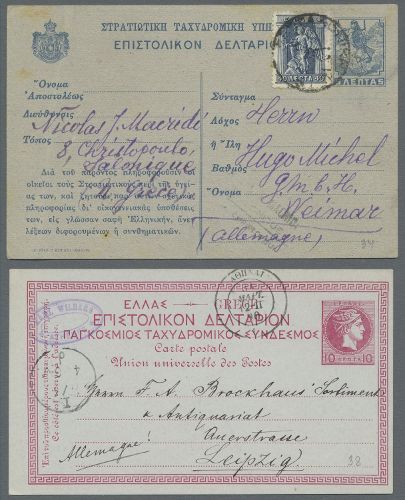 ΣΤΡΑΤΙΩΤΙΚΗ ΤΑΧΥΔΡΟΜΙΚΗ ΥΠΗ
ΕΠΙΣΤΟΛΙΚΟΝ ΔΕΛΤΑΡΙΟΝ
ΛΕΠΤΑ 5
Ὄνομα
Ἀποστολέως
Διεύθυνσις
Τόπος
Nicolas J. Macridi
8, Christopoulo,
Salonique
Grèce
Διὰ τοῦ παρόντος πληροφοροῦσιν οἱ
οἰκεῖοι τοὺς Στρατιωτικοὺς περὶ τῆς ὑγεί-
ας των, καὶ ζητοῦσι παρ'
πληροφορίας δι' οἰκογενειακὰς ὑποθέσεις
των, εἰς γλῶσσαν σαφῆ Ἑλληνικήν, ἄνευ
λέξεων διφορουμένων ἢ συνθηματικῶν.
Σύνταγμα
Λόχος
ἢ Ἴλη
Βαθμὸς
Ὄνομα
Herrn
Hugo Michel
G.m.b.H.
Weimar
(Allemagne)
ΕΛΛΑΣ GRÈCE
ΕΠΙΣΤΟΛΙΚΟΝ ΔΕΛΤΑΡΙΟΝ
ΠΑΓΚΟΣΜΙΟΣ ΤΑΧΥΔΡΟΜΙΚΟΣ ΣΥΝΔΕΣΜΟΣ
Carte postale
Union universelle des Postes
ΑΘΗΝΑΙ
10 10
Herrn F. A. Brockhaus' Sortiment
& Antiquariat
Querstrasse
Leipzig.
Allemagne!
38